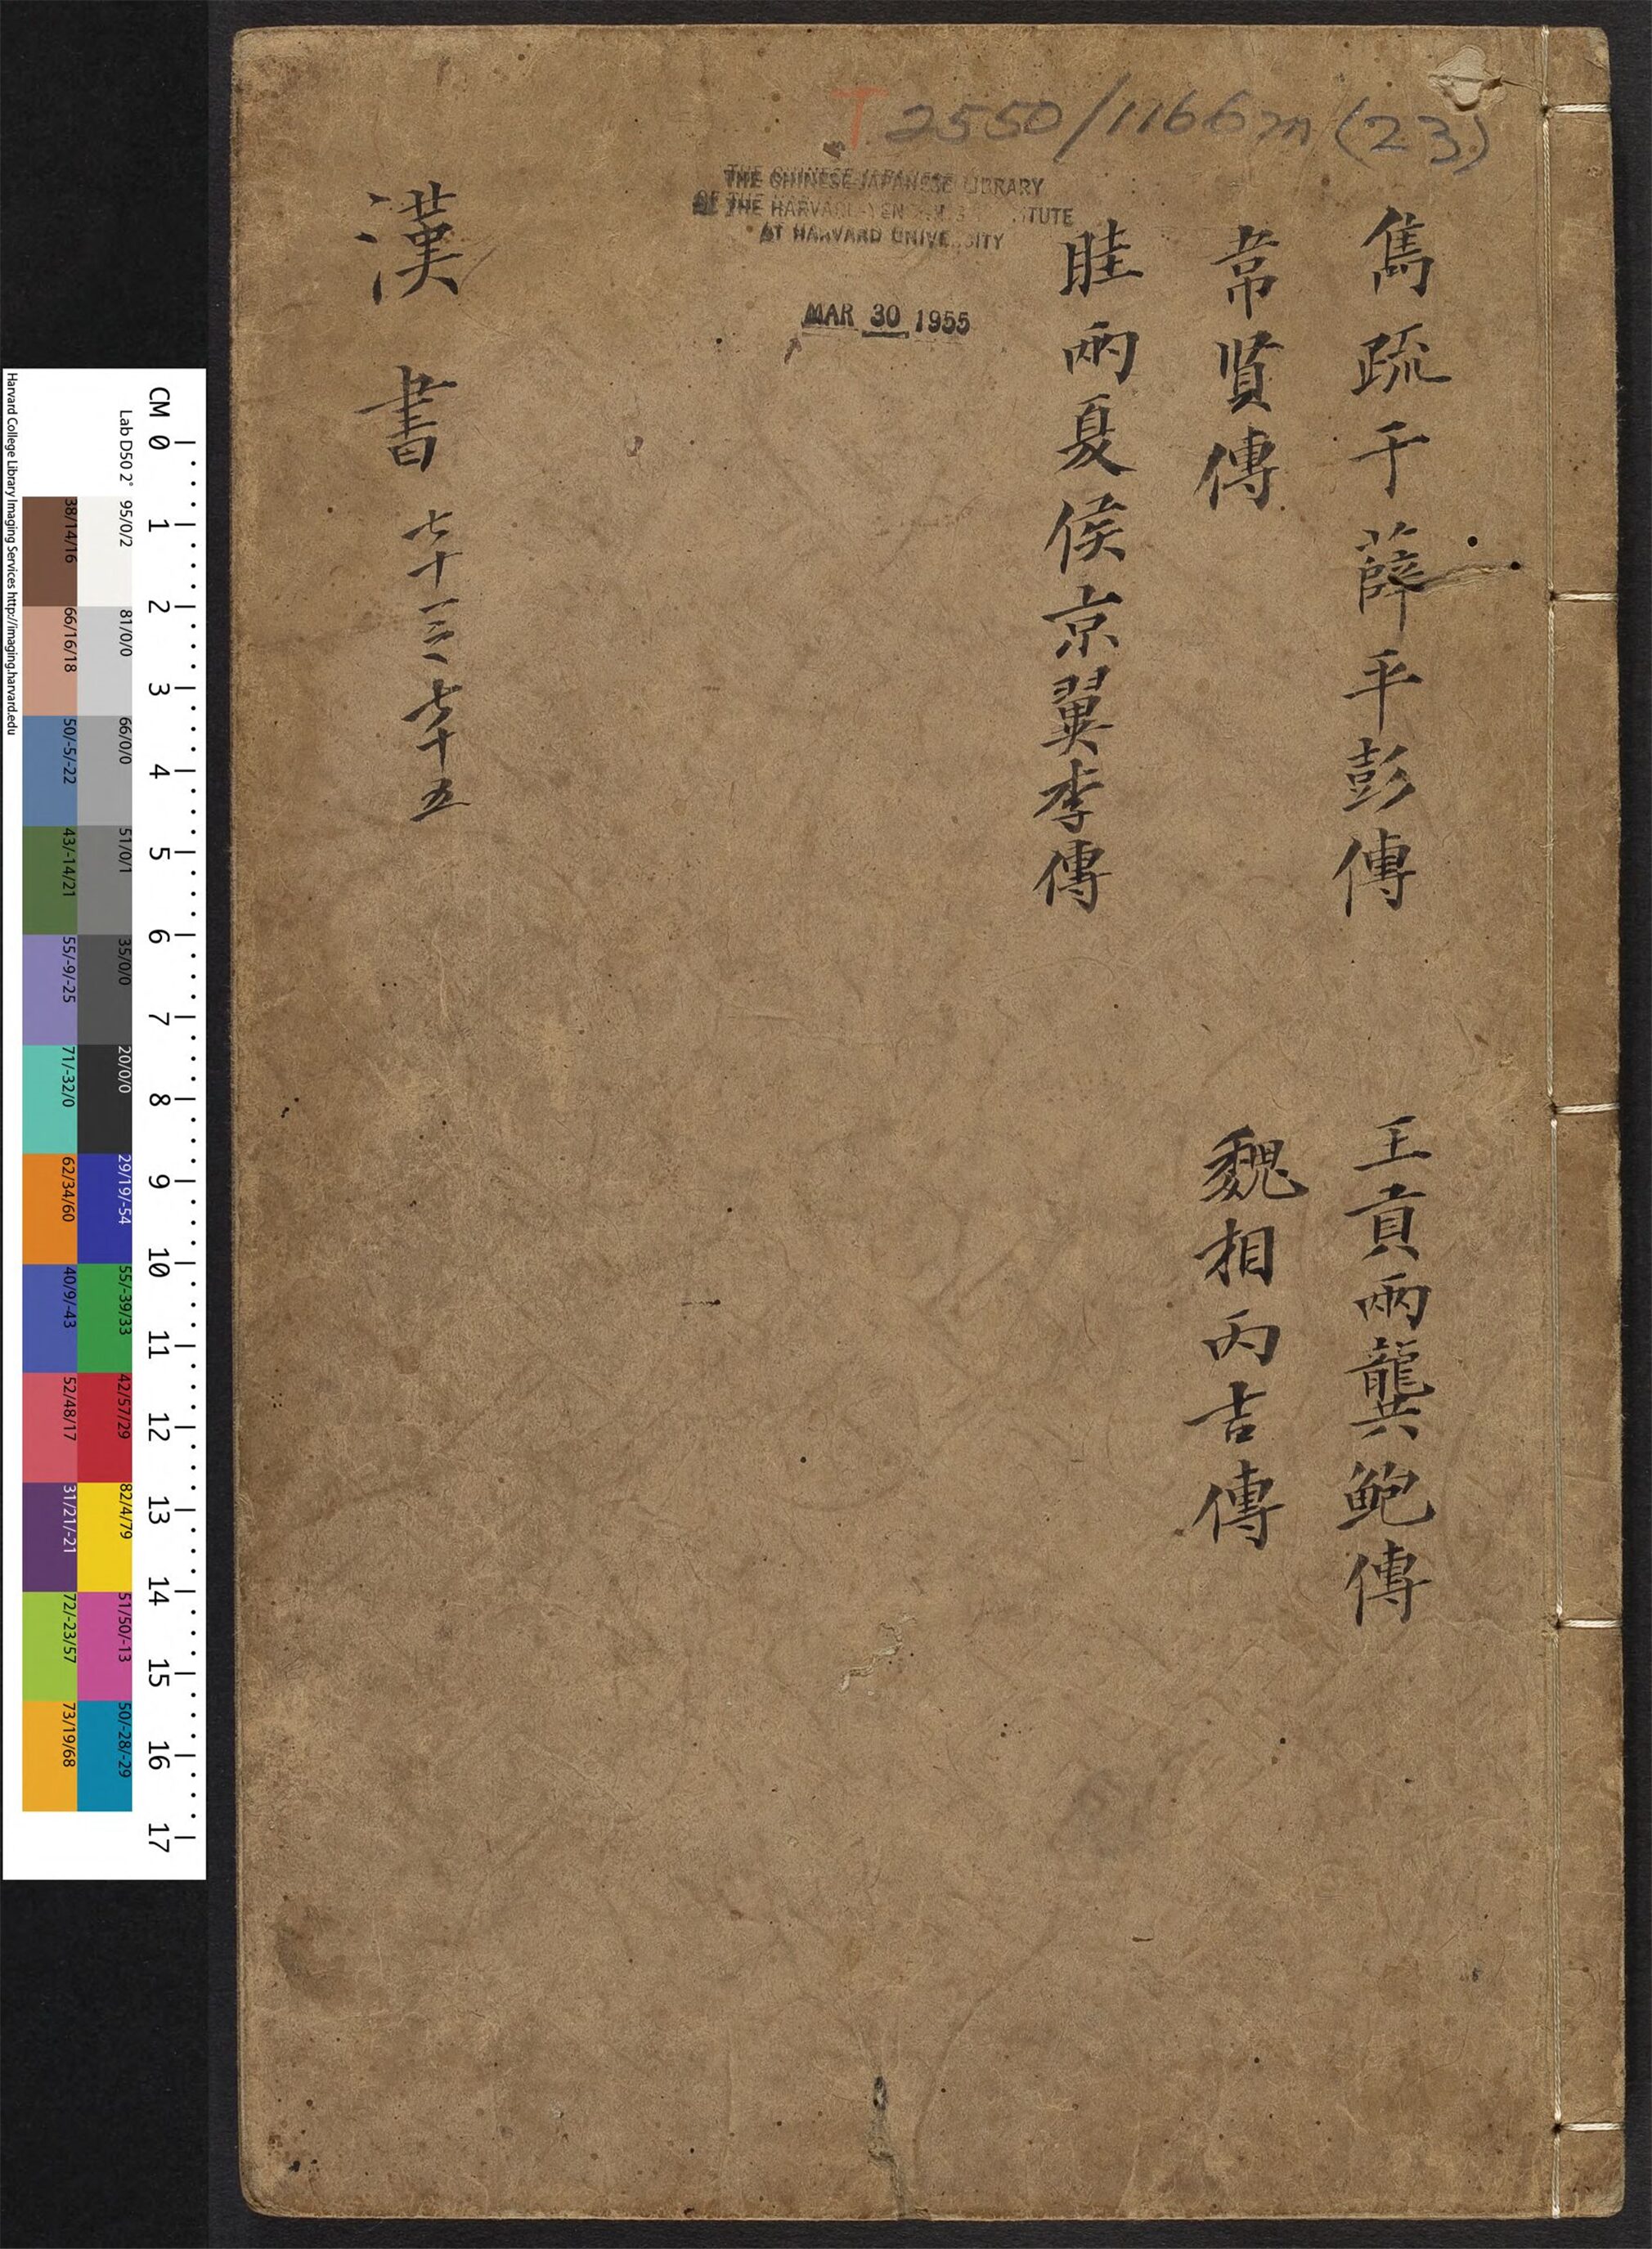 T 2550/1166m (23)
THE CHINESE-JAPANESE LIBRARY
OF THE HARVARD-YEN
AT HARVARD UNIVERSITY
MAR 30 1955
雋疏于薛平彭傳
王貢兩龔鮑傳
韋賢傳
魏相丙吉傳
眭兩夏侯京翼李傳
漢書 七十一之七十五
CM 0 1 2 3 4 5 6 7 8 9 10 11 12 13 14 15 16 17
Lab D50 2° 95/0/2 81/0/0 66/0/0 51/0/1 35/0/0 20/0/0 29/19/-54 55/-39/33 42/57/29 82/4/79 51/50/-13 50/-28/-29
38/14/16 66/16/18 50/-5/-22 43/-14/21 55/-9/-25 71/-32/0 62/34/60 40/9/-43 52/48/17 31/21/-21 72/-23/57 73/19/68
Harvard College Library Imaging Services http://imaging.harvard.edu